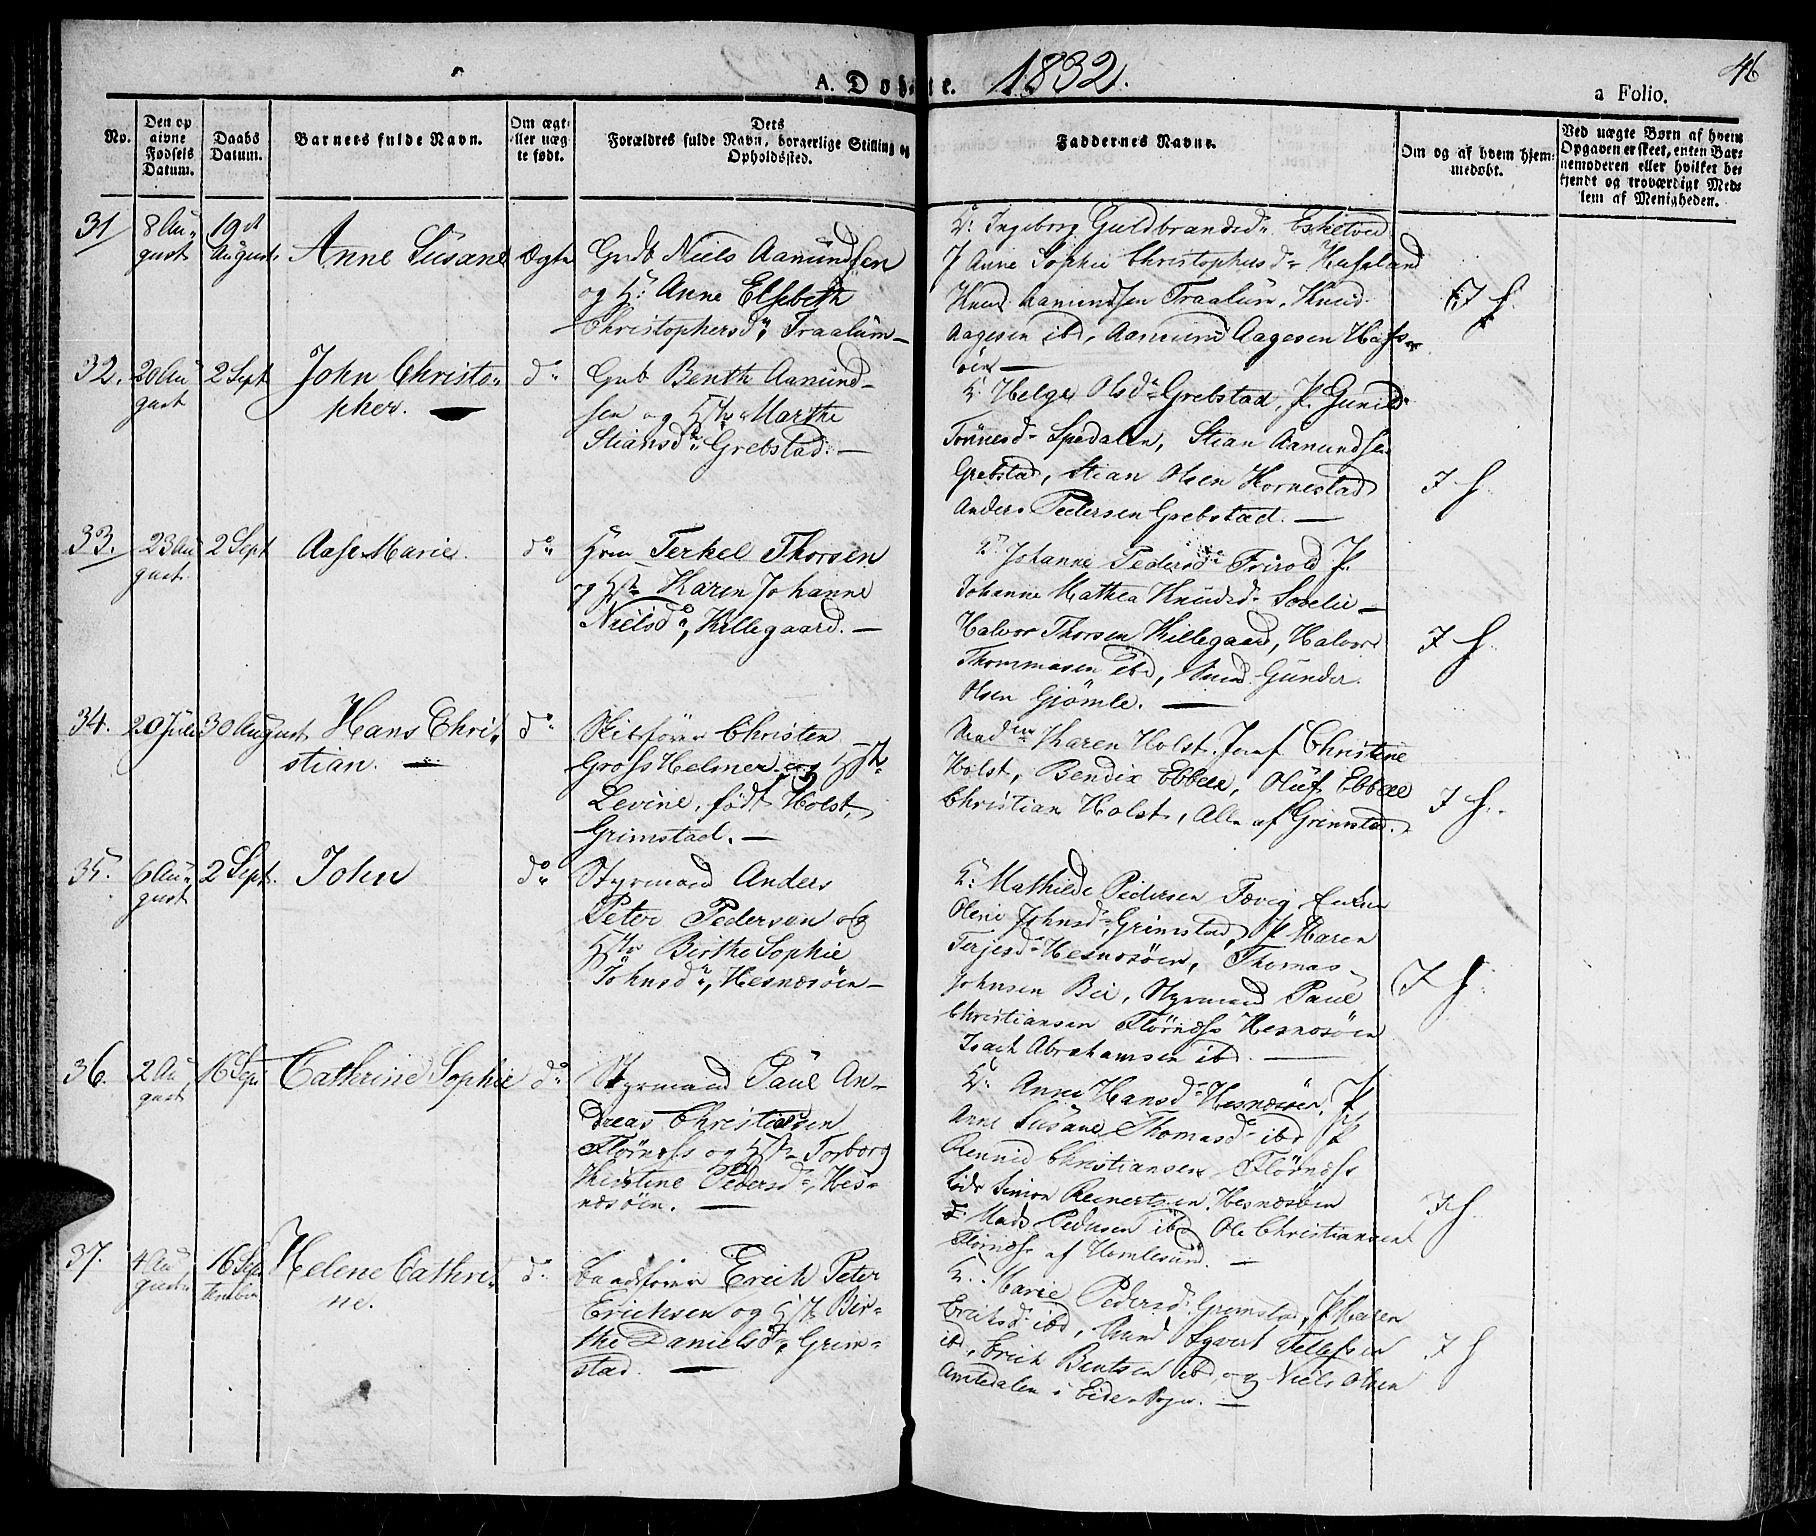 A. Døbte. 1832. 46
a Folio.
No.
Den opgivne Fødsels Datum.
Daabs Datum.
Barnets fulde Navn.
Om ægte eller uægte født.
Dets Forældres fulde Navn, borgerlige Stilling og Opholdssted.
Faddernes Navne.
Om og af hvem hjemmedøbt.
Ved uægte Børn af hvem Opgaven er skeet, enten Barnemoderen eller hvilket bekjendt og troværdigt Medlem af Menigheden.
31 8 Au-
gust
19d
August
Anne Susane
Ægte
Gmb Niels Aamundsen
og H: Anne Elsebeth
Christophersd: Traalum—
K: Ingeborg Guldbrandsd: Esketved
J Anne Sophie Christophersd: Husland
Knud Aamundsen Traalum, Knud
Aagesen ibd, Aamund Aagesen Hafs-
öen—
J f.
32. 20 Au
gust
2 Sept
John Christo-
pher. —
do
Gmb Benth Aamund-
sen og Hstr Marthe
Stiansd: Grebstad.—
K: Helge Olsd: Grebstad, P. Gunild
Tönnesd: Spedalen, Stian Aamundsen
Grebstad, Stian Olsen Hornestad
Anders Pedersen Grebstad. —
J f.
33. 23 Au
gust
2 Sept
Aase Marie.
do
Hmd Terkel Thorsen
og Hstr Karen Johanne
Nielsd:, Killegaard. —
K: Johanne Pedersd: Frivold P.
Johanne Mathea Knudsd: Sovelie —
Halvor Thorsen Killegaard, Halvor
Thommasen ibd, Gunder
Olsen Giömle. —
J f.
34. 20 Juli
30 August
Hans Chri-
stian. —
do
Skibsförer Christen
Gross Helmer og Hstr
Levine, födt Holst,
Grimstad. —
Madme Karen Holst. Jomf Christine
Holst, Bendix Ebbell, Oluf Ebbell
Christian Holst, Alle af Grimstad.
J f.
35. 6 Au-
gust
2 Sept.
John
do
Styrmand Anders
Peter Pedersen og
Hstr Birthe Sophie
Johnsd:, Hesnesöen—
K: Mathilde Pedersen Fævig, Enken
Oleni Johnsd: Grimstad, P Maren
Terjesd: Hesnesöen, Thomas
Johnsen Bie, Styrmand Paul
Christiansen Flörness Hesnesöen
Isach Abrahamsen ibd. —
J f.
36. 2 Au
gust
16 Sept
Cathrine Sophie
do
Styrmand Paul An-
dreas Christiansen
Flörness og Hstr Torborg
Kirstine Pedersd:, Hes-
nesöen. —
K: Anne Hansd: Hesnesöen, P
Anne Susane Thomasd: ibd P
Christiansen Flörness
Simon Reinertsen Hesnesöen
Mads Pedersen ibd Ole Christiansen
Flörness af Homlesund. —
J f.
37. 4 Au
gust
16 Sep
tember
Helene Cathri-
ne.
do
Baadsförer Erich Peter
Erichsen og Hstr Bir-
the Danielsd: Grim-
stad. —
K. Marie Pedersd: Grimstad, P Maren
Erichsd: ibd, Syvert Tellefsen
ibd, Erich Bentsen ibd, og Niels Olsen
Amtedalen i Eide Sogn. —
J f